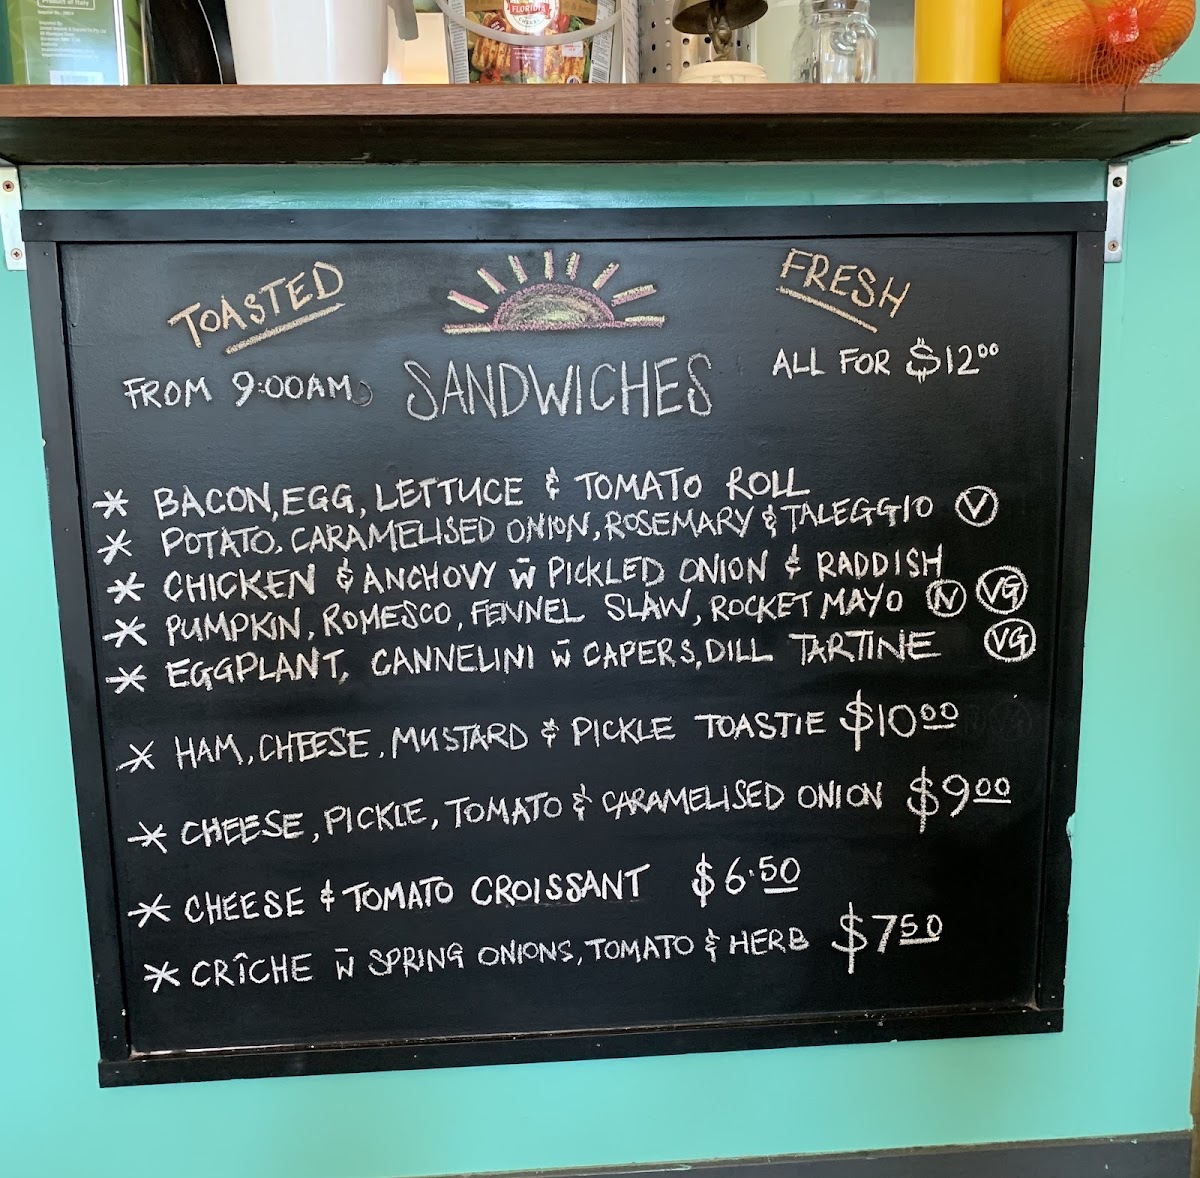 Product of Italy
FLORIDIA
CHEESE
TOASTED
FRESH
FROM 9:00AM
SANDWICHES
ALL FOR $12.00
* BACON, EGG, LETTUCE & TOMATO ROLL
* POTATO, CARAMELISED ONION, ROSEMARY & TALEGGIO V
* CHICKEN & ANCHOVY W PICKLED ONION & RADDISH
* PUMPKIN, ROMESCO, FENNEL SLAW, ROCKET MAYO N VG
* EGGPLANT, CANNELINI W CAPERS, DILL TARTINE VG
* HAM, CHEESE, MUSTARD & PICKLE TOASTIE $10.00
* CHEESE, PICKLE, TOMATO & CARAMELISED ONION $9.00
* CHEESE & TOMATO CROISSANT $6.50
* CRÎCHE W SPRING ONIONS, TOMATO & HERB $7.50